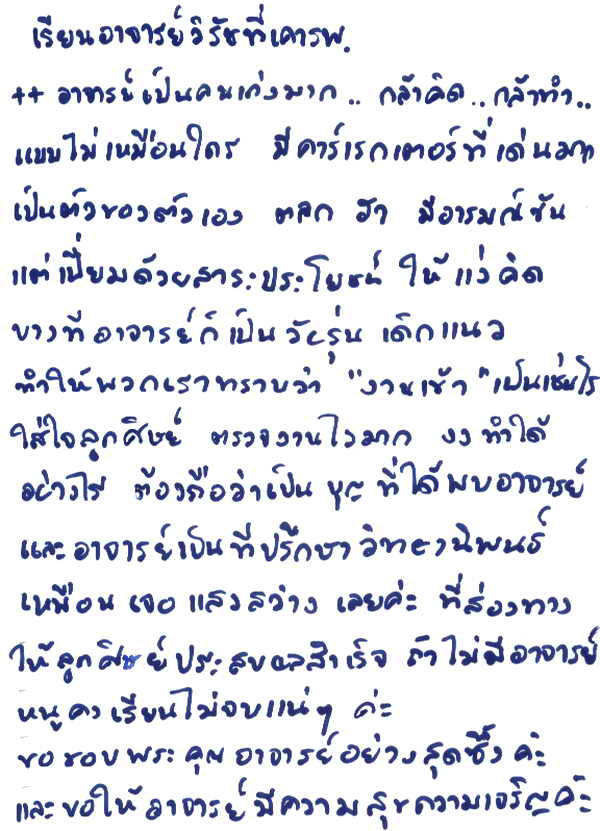 เรียนอาจารย์วิรัชที่เคารพ.
++ อาจารย์เป็นคนเก่งมาก.. กล้าคิด..กล้าทำ..
แบบไม่เหมือนใคร มีคาร์แรกเตอร์ที่เด่นมาก
เป็นตัวของตัวเอง ตลก ฮา มีอารมณ์ขัน
แต่เปี่ยมด้วยสาระประโยชน์ ให้แง่คิด
บางทีอาจารย์ก็เป็นวัยรุ่น เด็กแนว
ทำให้พวกเราทราบว่า "งานเข้า" เป็นเช่นไร
ใส่ใจลูกศิษย์ ตรวจงานไวมาก งงทำได้
อย่างไร ต้องถือว่าเป็น บุญ ที่ได้พบอาจารย์
และอาจารย์เป็นที่ปรึกษาวิทยานิพนธ์
เหมือนเจอแสงสว่าง เลยค่ะ ที่ส่องทาง
ให้ลูกศิษย์ประสบผลสำเร็จ ถ้าไม่มีอาจารย์
หนูคงเรียนไม่จบแน่ๆ ค่ะ
ขอขอบพระคุณอาจารย์อย่างสุดซึ้งค่ะ
และขอให้อาจารย์มีความสุขความเจริญค่ะ